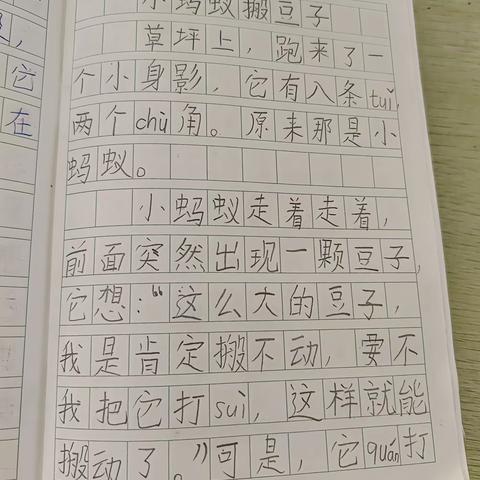 小蚂蚁搬豆子
草坪上，跑来了一
个小身影，它有八条tuǐ，
两个chù角。原来那是小
蚂蚁。
小蚂蚁走着走着，
前面突然出现一颗豆子，
它想：“这么大的豆子，
我是肯定搬不动，要不
我把它打suì，这样就能
搬动了。”可是，它quán打
它
在